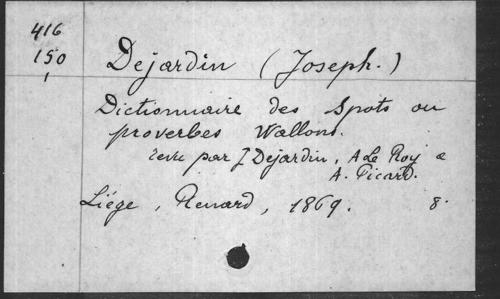 416
150
1
Dejardin (Joseph.)
Dictionnaire des Spots ou
proverbes Wallons.
revu par J Dejardin, A Le Roy &
A. Picard.
Liége, Renard, 1869. 8.